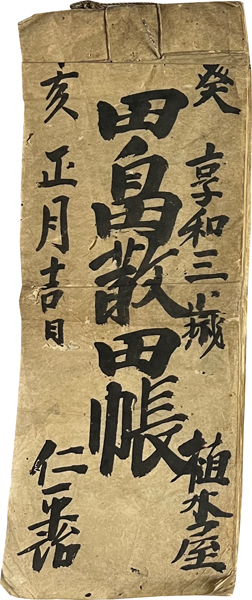 癸 享和三歳 植木屋
田畠散田帳
亥 正月吉日 仁平治